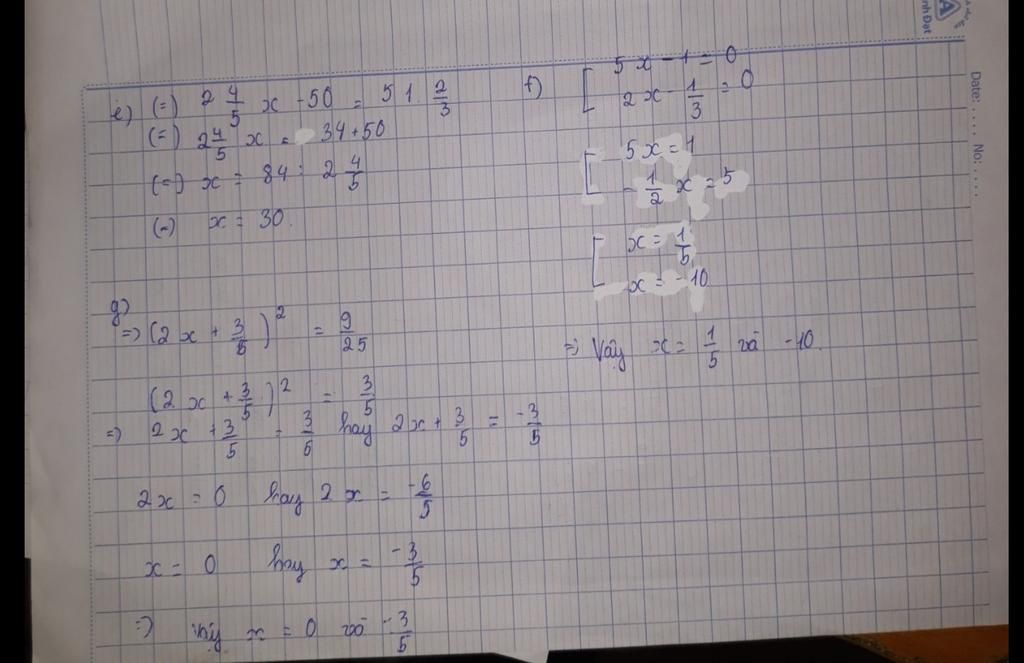 e) (=) 2 4/5 x - 50 = 51 . 2/3
(=) 2 4/5 x = 34 + 50
(=) x = 84 : 2 4/5
(=) x = 30.
f) [ 5x - 1 = 0
2x - 1/3 = 0
[ 5x = 1
- 1/2 x = 5
[ x = 1/5
x = - 10
=> Vậy x = 1/5 và -10.
g)
=> (2x + 3/5)² = 9/25
(2x + 3/5)² = 3/5
=> 2x + 3/5 = 3/5 hay 2x + 3/5 = -3/5
2x = 0 hay 2x = -6/5
x = 0 hay x = -3/5
=> vậy x = 0 và -3/5
Date: .... No: ....